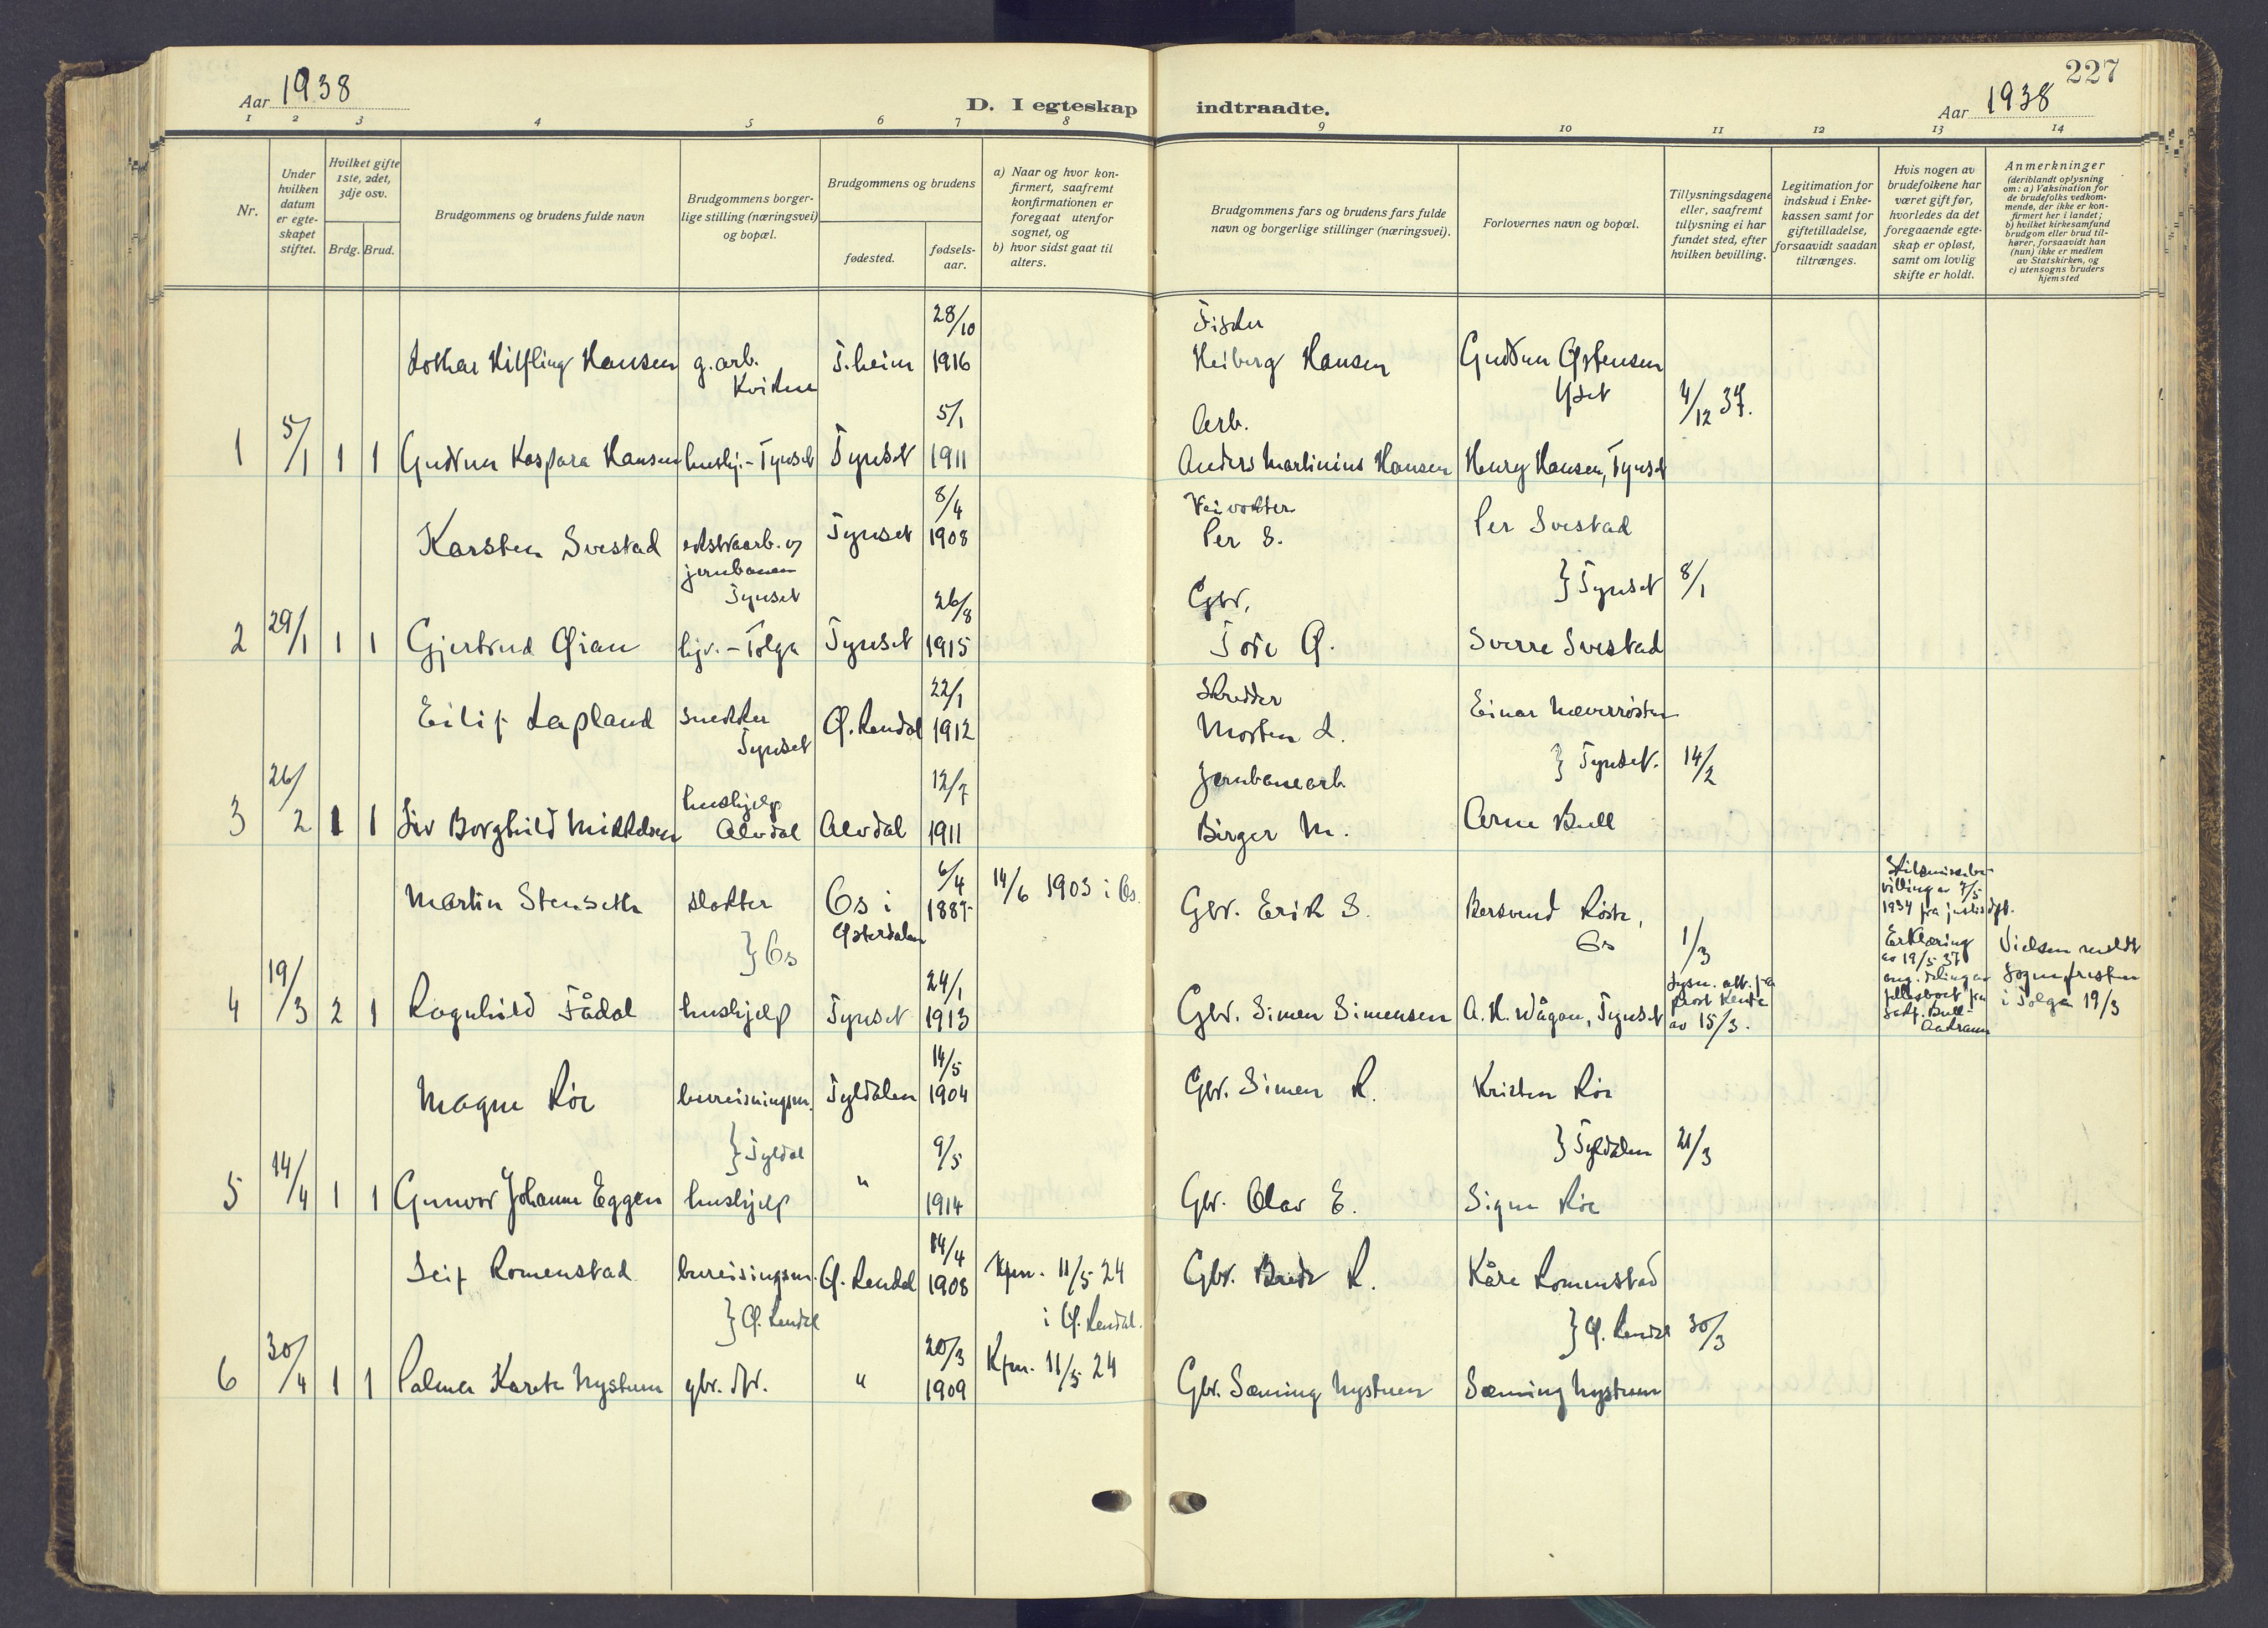 227
Aar 1938
D. I egteskap indtraadte.
Aar 1938
1 2 3 4 5 6 7 8 9 10 11 12 13 14
Nr.
Under hvilken datum er egteskapet stiftet.
Hvilket gifte 1ste, 2det, 3dje osv.
Brdg. Brud.
Brudgommens og brudens fulde navn
Brudgommens borgerlige stilling (næringsvei) og bopæl.
Brudgommens og brudens
fødested.
fødselsaar.
a) Naar og hvor konfirmert, saafremt konfirmationen er foregaat utenfor sognet, og
b) hvor sidst gaat til alters.
Brudgommens fars og brudens fars fulde navn og borgerlige stillinger (næringsvei).
Forlovernes navn og bopæl.
Tillysningsdagene eller, saafremt tillysning ei har fundet sted, efter hvilken bevilling.
Legitimation for indskud i Enkekassen samt for giftetilladelse, forsaavidt saadan tiltrænges.
Hvis nogen av brudefolkene har været gift før, hvorledes da det foregaaende egteskap er opløst, samt om lovlig skifte er holdt.
Anmerkninger
(deriblandt oplysning om: a) Vaksination for de brudefolks vedkommende, der ikke er konfirmert her i landet;
b) hvilket kirkesamfund brudgom eller brud tilhører, forsaavidt han (hun) ikke er medlem av Statskirken, og
c) utensogns bruders hjemsted
28/10
Fisker
Lothar Hansen g.arb. T.heim 1916 Heiberg Hansen Gudrun Østensen
Kvikne
Yset 4/12 37.
5/1
Arb.
1 5/1 1 1 Gudrun Kaspara Hansen hushj.-Tynset Tynset 1911 Anders Martinius Hansen Henry Hansen, Tynset
8/4
Veivokter
Karsten Svestad ekstraarb. v/ Tynset 1908 Per S. Per Svestad
jernbanen
Tynset
} Tynset 8/1
26/8
Gbr.
2 29/1 1 1 Gjertrud Øian hjv.-Tolga Tynset 1915 Tore Ø. Sverre Svestad
22/1
Skredder
Eilif Lapland snekker Ø. Rendal 1912 Morten L. Einar Næverrösten
Tynset
} Tynset. 14/2
12/7
Jernbanearb.
3 26/2 1 1 Liv Borghild Mikkelsen hushjelp
Alvdal Alvdal 1911 Birger M. Arne Bull
6/4
Martin Stenseth slakter Os i 1887 14/6 1903 i Os. Gbr. Erik S. Bersvend Röste,
Østerdalen
Os 1/3
} Os
Skilsmissebevilling av 7/5 1934 fra justisdpt.
Erklæring av 19/5 37 ang. deling av fellesboet fra sakf. Bull-Aakrann
24/1
4 19/3 2 1 Ragnhild Fådal hushjelp Tynset 1913 Gbr. Simen Simensen A. K. Wågan, Tynset
Lysn. att. fra
av 15/3.
Vielsen meldt
Sognepresten
i Tolga 19/3
14/5
Magne Röe bureisningsm. Tyldalen 1904 Gbr. Simen R. Kristen Röe
} Tyldal
} Tyldalen 21/3
9/5
5 14/4 1 1 Gunvor Johanne Eggen hushjelp " 1914 Gbr. Olav E. Signe Röe
14/4
Leif Romenstad bureisingsm. Ø. Rendal 1908 Kfm. 11/5 24 Gbr. Brede R. Kåre Romenstad
} Ø. Rendal
i Ø. Rendal.
} Ø. Rendal 30/3
20/3
6 30/4 1 1 Palma Karete Nystuen gbr. dtr. " 1909 Kfm. 11/5 24 Gbr. Sæming Nystuen Sæming Nystuen